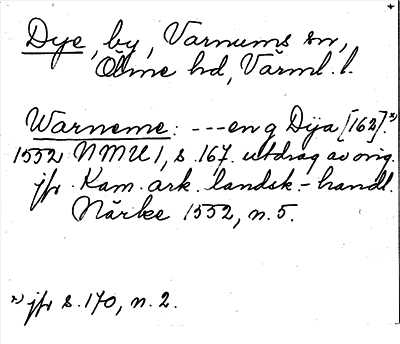 Dye, by, Varnums sn,
Ölme hd, Värml. l.
Warneme: ---en g Dya [162].*)
1552 NMU 1, s. 167. utdrag av orig.
jfr Kam. ark. landsk.- handl.
Närke 1552, n. 5.
*) jfr s. 170, n. 2.